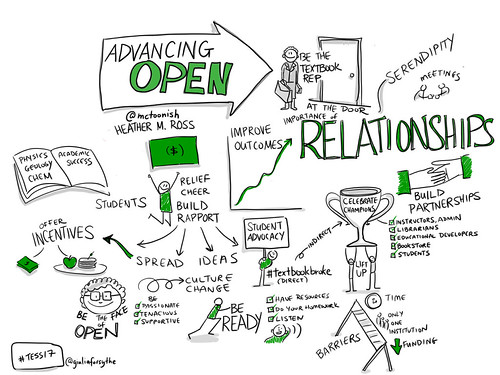 ADVANCING
OPEN
BE THE
TEXTBOOK
REP
AT THE DOOR
SERENDIPITY
MEETINGS
@mctoonish
HEATHER M. ROSS
IMPORTANCE OF
RELATIONSHIPS
IMPROVE
OUTCOMES
($)
PHYSICS
GEOLOGY
CHEM
ACADEMIC
SUCCESS
STUDENTS
RELIEF
CHEER
BUILD
RAPPORT
CELEBRATE
CHAMPIONS
BUILD
PARTNERSHIPS
INSTRUCTORS, ADMIN
LIBRARIANS
EDUCATIONAL DEVELOPERS
BOOKSTORE
STUDENTS
OFFER
INCENTIVES
SPREAD IDEAS
STUDENT
ADVOCACY
INDIRECT
#textbookbroke
(DIRECT)
LIFT
UP
CULTURE
CHANGE
BE THE FACE
OF
OPEN
BE
PASSIONATE
TENACIOUS
SUPPORTIVE
BE
READY
HAVE RESOURCES
DO YOUR HOMEWORK
LISTEN
TIME
ONLY
ONE
INSTITUTION
FUNDING
BARRIERS
#TESS17
@giuliaforsythe